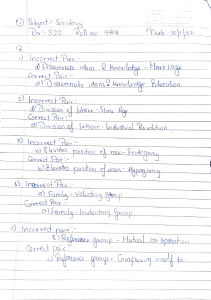 ① Subject - Sociology
Div - S22 Roll no - 4408 Date - 10/1/22
②
1) Incorrect Pair :-
d) Disseminate ideas & Knowledge - Marriage
Correct Pair :-
d) Disseminate ideas & Knowledge - Education
2) Incorrect Pair :-
a) Division of labour - Stone Age
Correct Pair :-
a) Division of labour - Industrial Revolution
3) Incorrect Pair :-
b) Elevates position of man - Endogamy
Correct Pair :-
b) Elevates position of man - Hypogamy
4) Incorrect Pair :-
a) Family - Voluntary group
Correct Pair
a) Family - Involuntary Group
5) Incorrect pair :-
Reference group - Mutual co operation
Correct pair :-
Reference group - Comparing oneself to